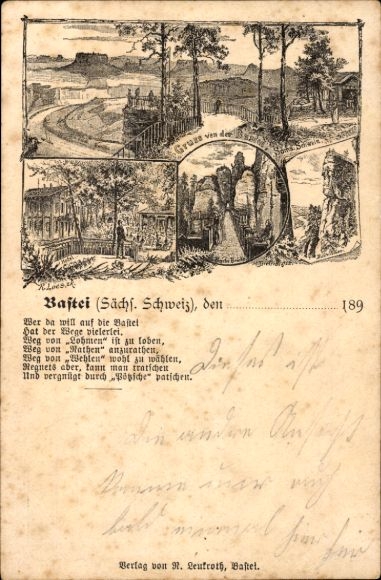 Gruss von der
R. Loës. X
Bastei (Sächs. Schweiz), den 189
Wer da will auf die Bastei
Hat der Wege vielerlei.
Weg von „Lohmen“ ist zu loben,
Weg von „Rathen“ anzurathen,
Weg von „Wehlen“ wohl zu wählen,
Regnets aber, kann man tratschen
Und vergnügt durch „Pötzsche“ patschen.
Dieses ist
Die andere Ansicht
bald einmal hier
Verlag von R. Leukroth, Bastei.